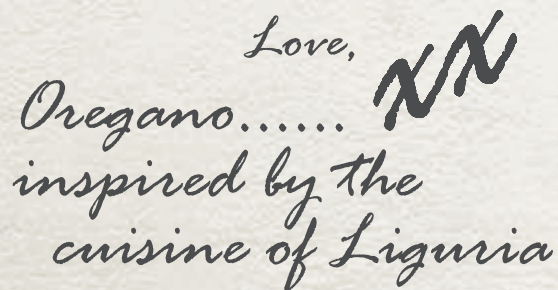 Love,
XX
Oregano......
inspired by the
cuisine of Liguria